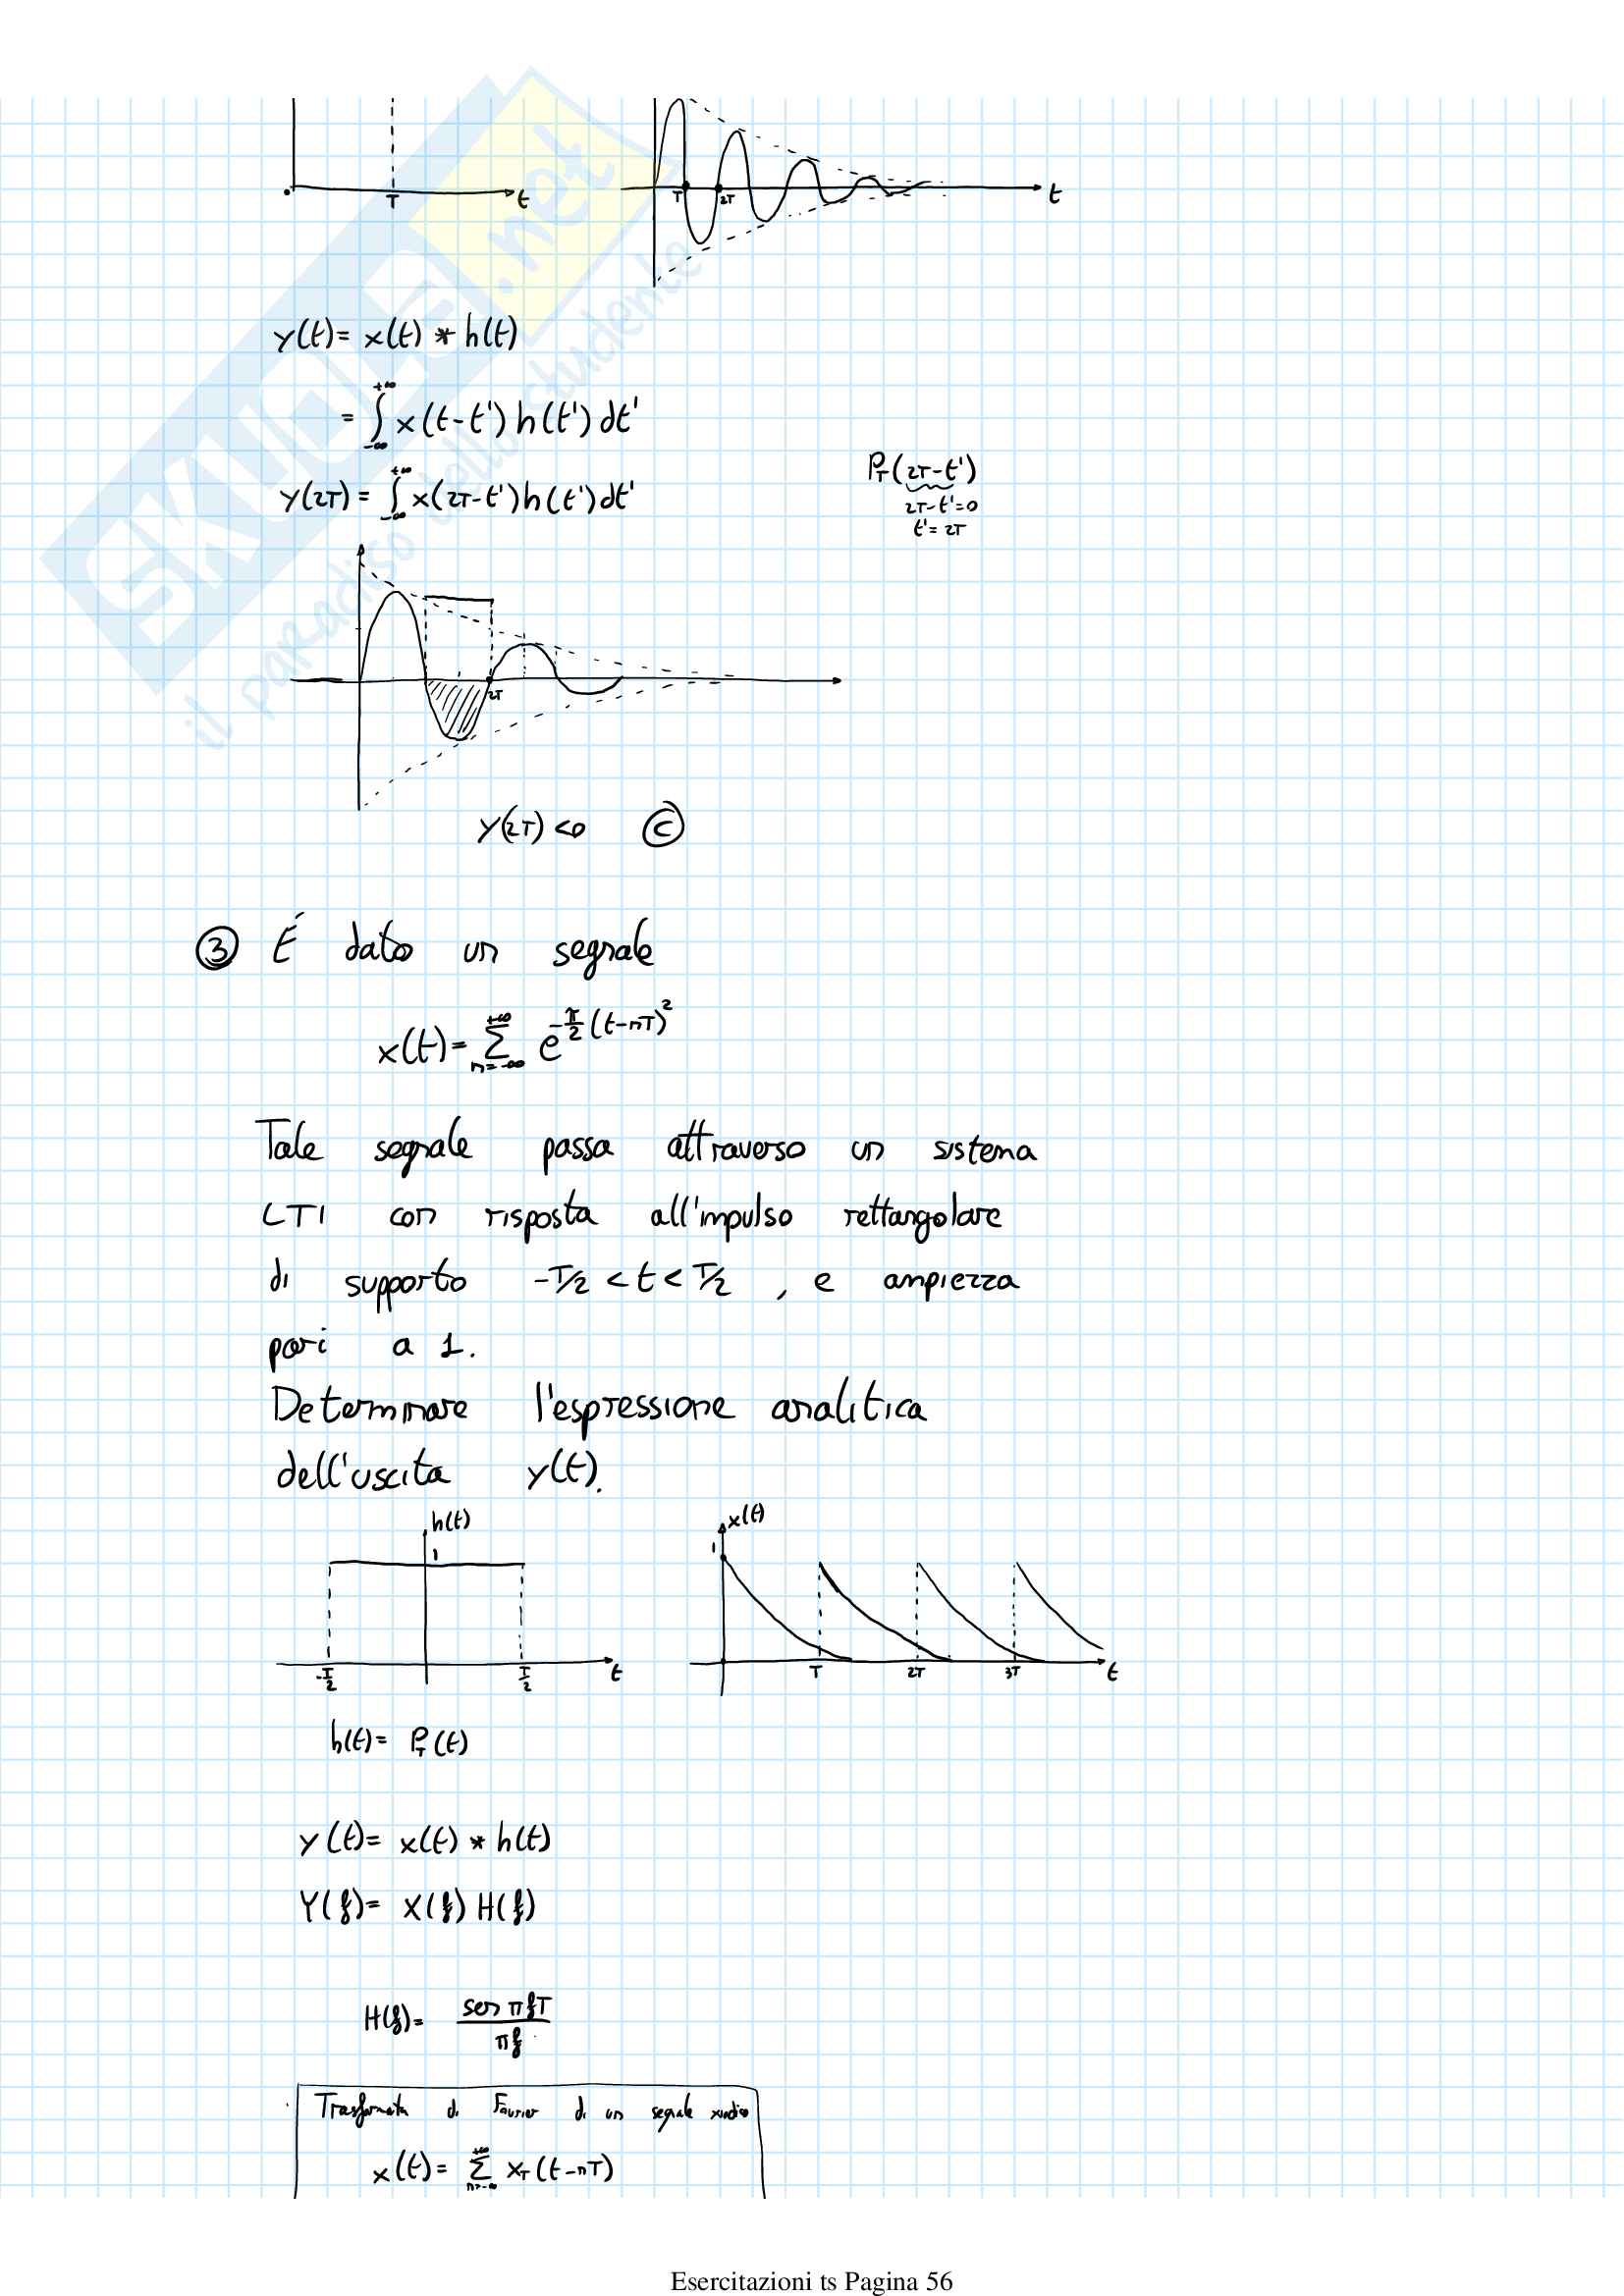 T t
T 2T t
y(t)= x(t) * h(t)
= ∫_{-∞}^{+∞} x(t-t') h(t') dt'
P_T(2T-t')
y(2T) = ∫_{-∞}^{+∞} x(2T-t') h(t') dt'
2T-t'=0
t'= 2T
2T
y(2T) <0 Ⓒ
③ É dato un segnale
x(t)= Σ_{n=-∞}^{+∞} e^{-π/2 (t-nT)²}
Tale segnale passa attraverso un sistema
LTI con risposta all'impulso rettangolare
di supporto -T/2 < t < T/2 , e ampiezza
pari a 1.
Determinare l'espressione analitica
dell'uscita y(t).
h(t) x(t)
1 1
-T/2 T/2 t T 2T 3T t
h(t)= P_T(t)
y(t)= x(t) * h(t)
Y(f)= X(f) H(f)
H(f)= sen πfT / πf
Trasformata di Fourier di un segnale
x(t)= Σ_{n=-∞}^{+∞} x_T(t-nT)
Esercitazioni ts Pagina 56
SKUOLA.net
il paradiso dello studente